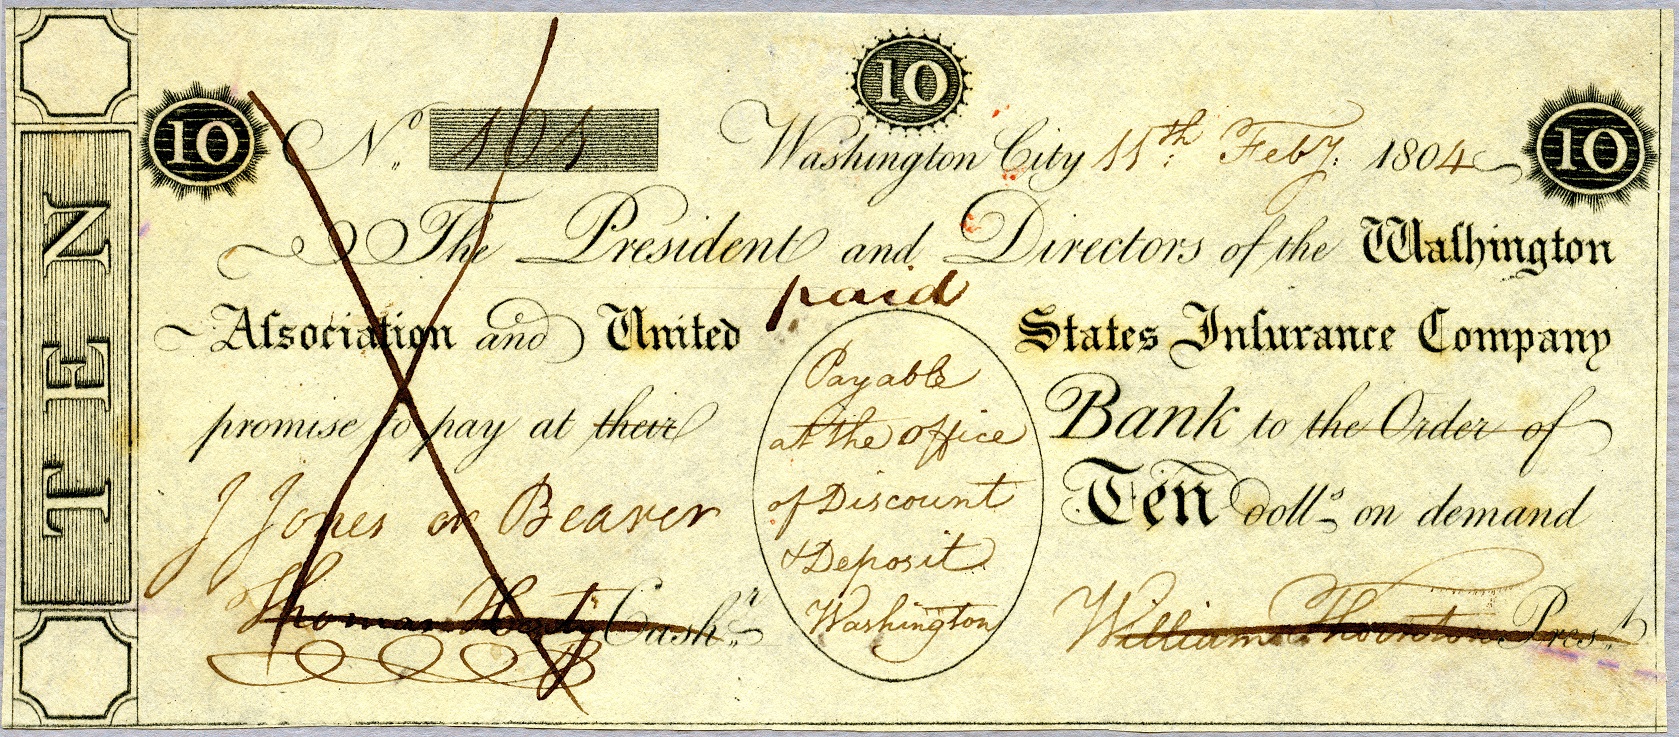 10
TEN
10 No. 101 Washington City 11th. Feby. 1804 10
The President and Directors of the Waſhington
paid
Aſsociation and United States Inſurance Company
promise to pay at their Bank to the Order of
J Jones or Bearer Ten dolls. on demand
Payable
at the office
of Discount
& Deposit
Washington
Thomas Cashr. William Thornton Prest.